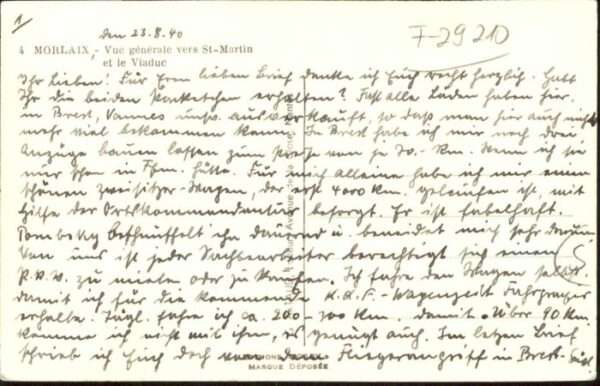 1
den 23.8.40
F-29210
4 MORLAIX. - Vue générale vers St-Martin
et le Viaduc
Ihr Lieben! Für Euren lieben Brief danke ich Euch recht herzlich. Habt
Ihr die beiden Paketchen erhalten? Fast alle Läden haben hier,
in Brest, Vannes usw. ausverkauft, so daß man hier auch nicht
mehr viel bekommen kann. In Brest habe ich mir noch drei
Anzüge bauen lassen zum Preise von je 70.- Rm. Wenn ich sie
nur schon in Hütte. Für mich alleine habe ich mir einen
schönen zweisitzer-Wagen, der erst 4000 km. gelaufen ist, mit
Hilfe der Ortskommandantur besorgt. Er ist fabelhaft.
beschnüffelt ihn dauernd u. beneidet mich sehr darum.
Von uns ist jeder Sachbearbeiter berechtigt sich einen
P.K.W. zu mieten oder zu kaufen. Ich fahre den Wagen selbst
damit ich für die kommende K.d.F.-Wagenzeit Fahrpraxis
erhalte. Tägl. fahre ich ca. 200-300 km. damit. Über 90 km
komme ich nicht mit ihm, es genügt auch. Im letzen Brief
schrieb ich Euch doch von dem Fliegerangriff in Brest.
MARQUE DÉPOSÉE
5